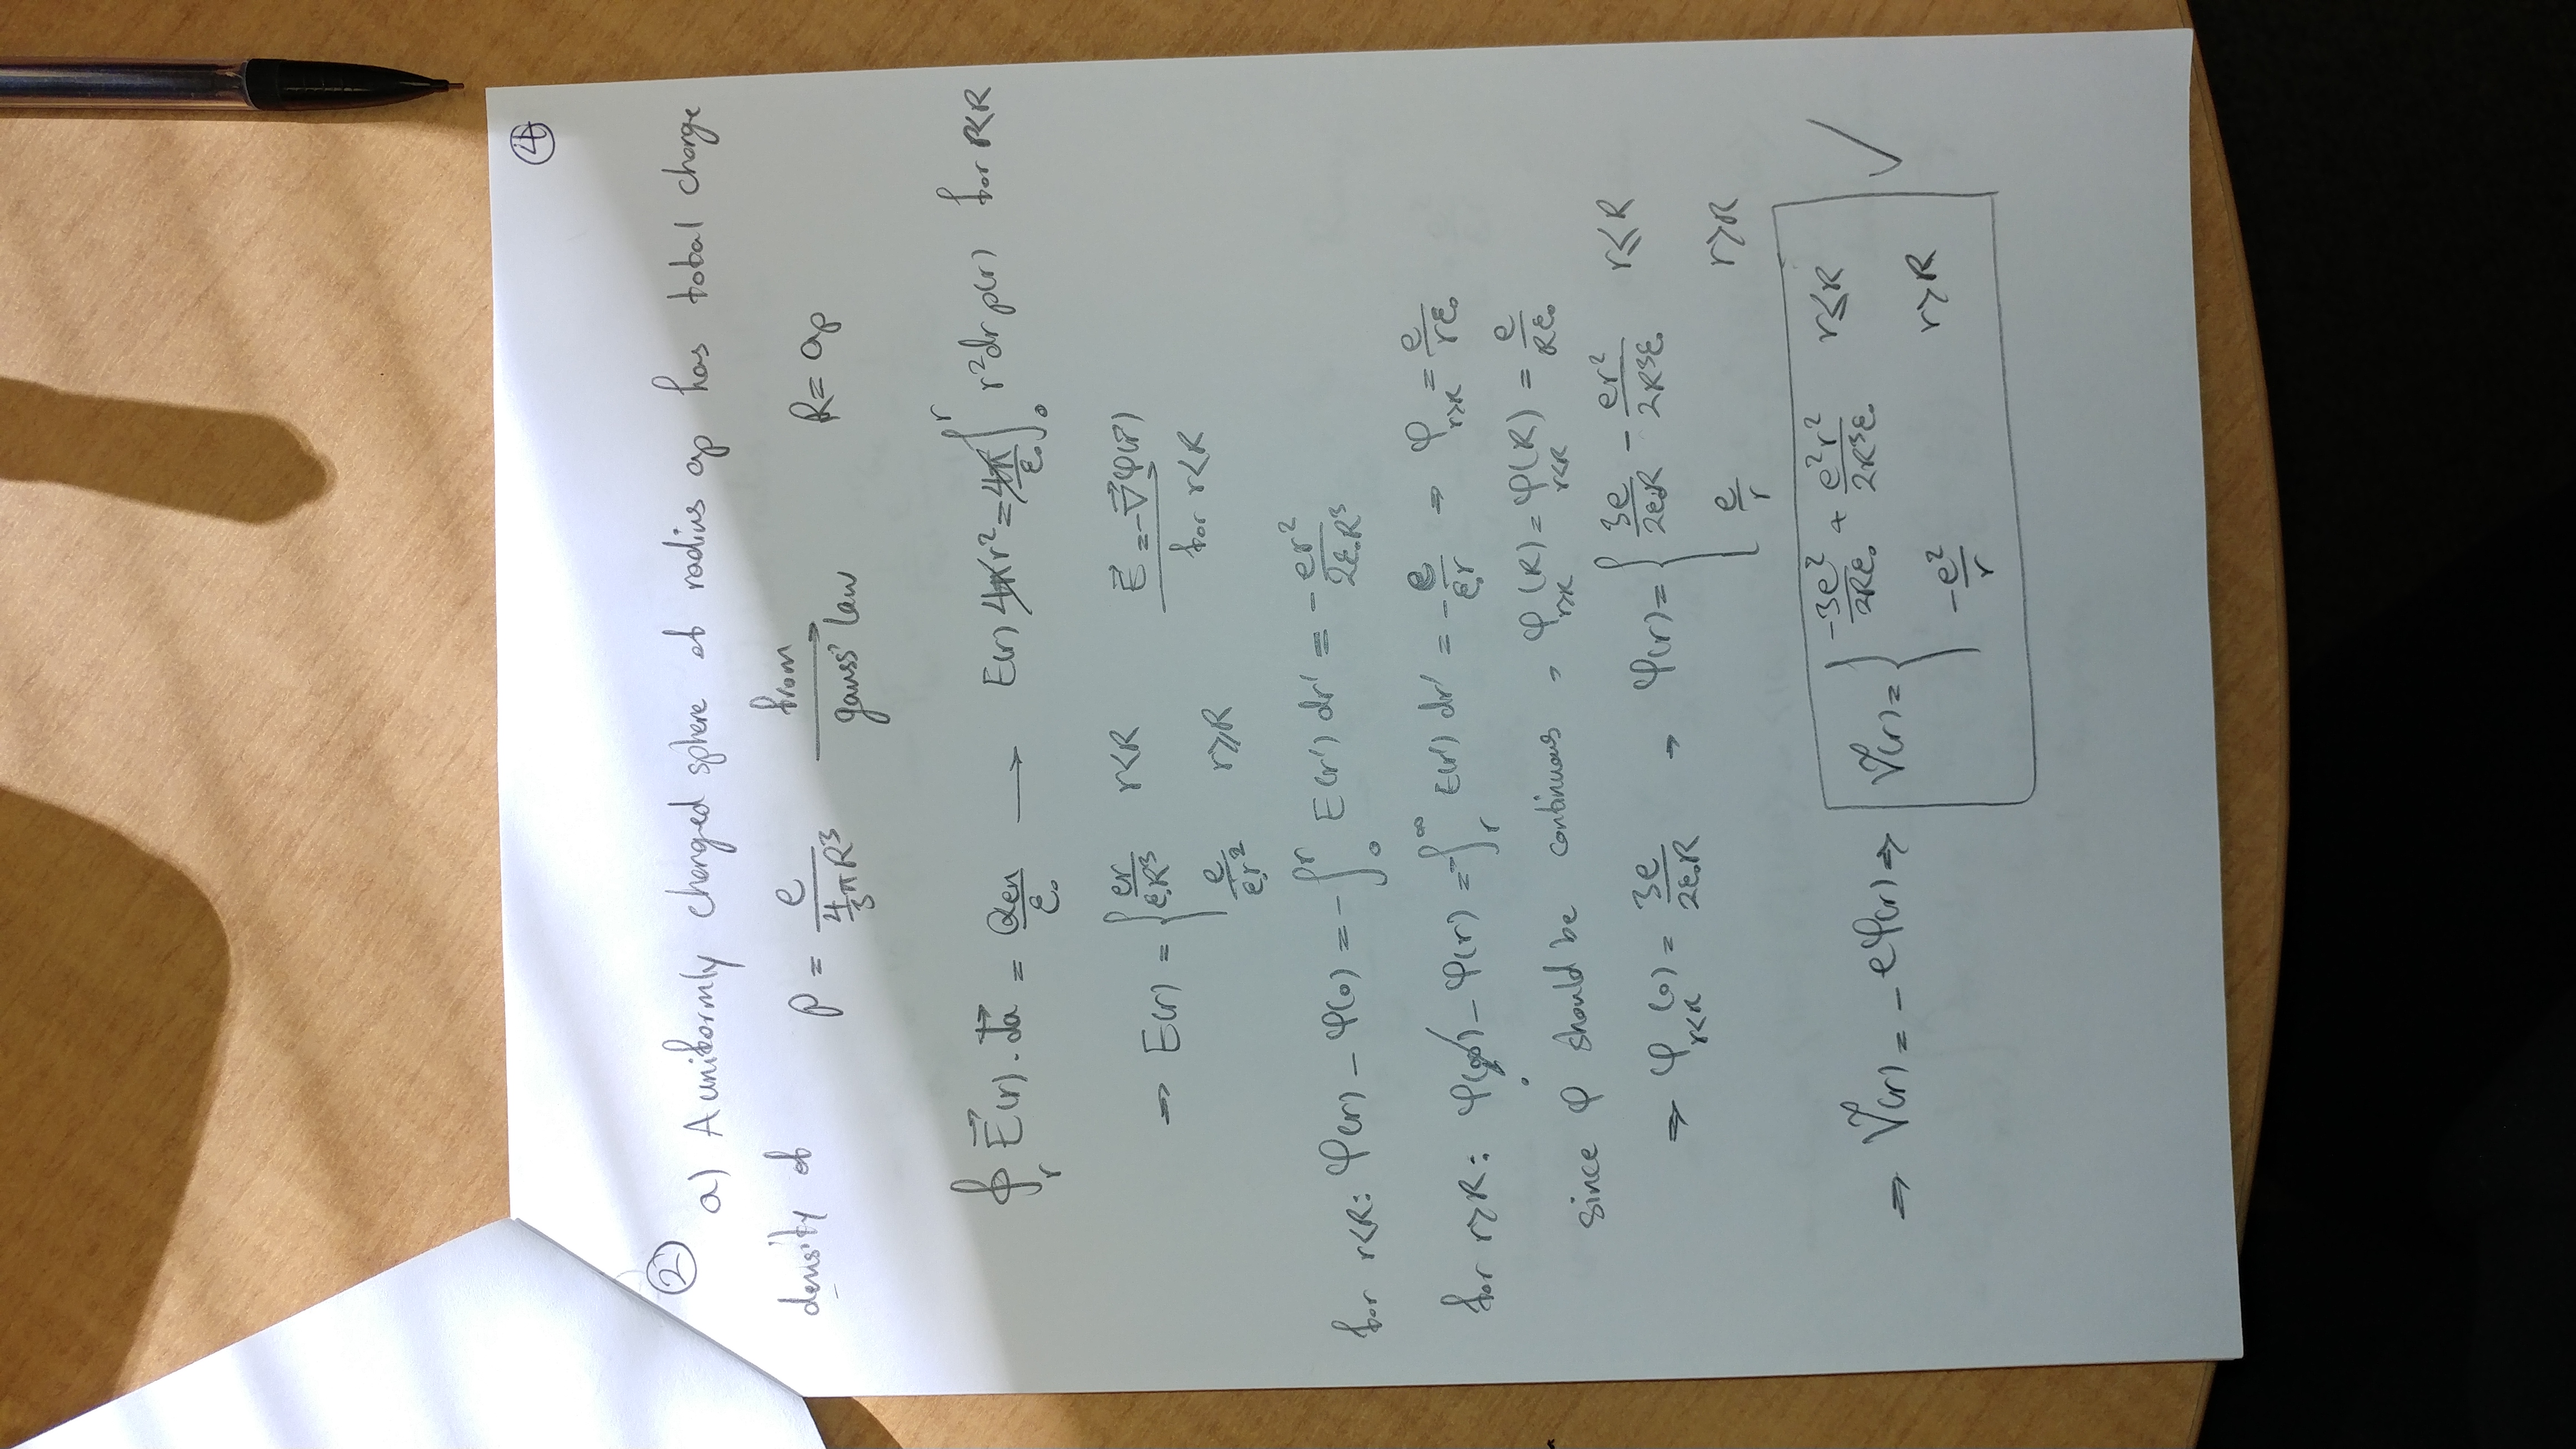 ④
② a) A uniformly charged sphere of radius ap has total charge
density of ρ = e / (4/3 πR³) from gauss' law → R = ap
∮_r E⃗(r) · da⃗ = Qen/ε₀ → E(r) 4πr² = 4π/ε₀ ∫₀^r r²dr ρ(r) for r<R
⇒ E(r) = { er/ε₀R³ r<R ; e/ε₀r² r⩾R } E⃗ = -∇⃗φ(r⃗) for r<R →
for r<R: φ(r) - φ(0) = -∫₀^r E(r') dr' = - er²/2ε₀R³
for r>R: φ(∞) - φ(r) = -∫_r^∞ E(r') dr' = - e/ε₀r ⇒ φ_{r>R} = e/rε₀
0
since φ should be continuous → φ_{r>R}(R) = φ_{r<R}(R) = e/Rε₀
⇒ φ_{r<R}(0) = 3e/2ε₀R → φ(r) = { 3e/2ε₀R - er²/2R³ε₀ r⩽R ; e/r r>R }
⇒ Ṽ(r) = -eφ(r) ⇒ Ṽ(r) = { -3e²/2Rε₀ + e²r²/2R³ε₀ r⩽R ; -e²/r r>R } ✓